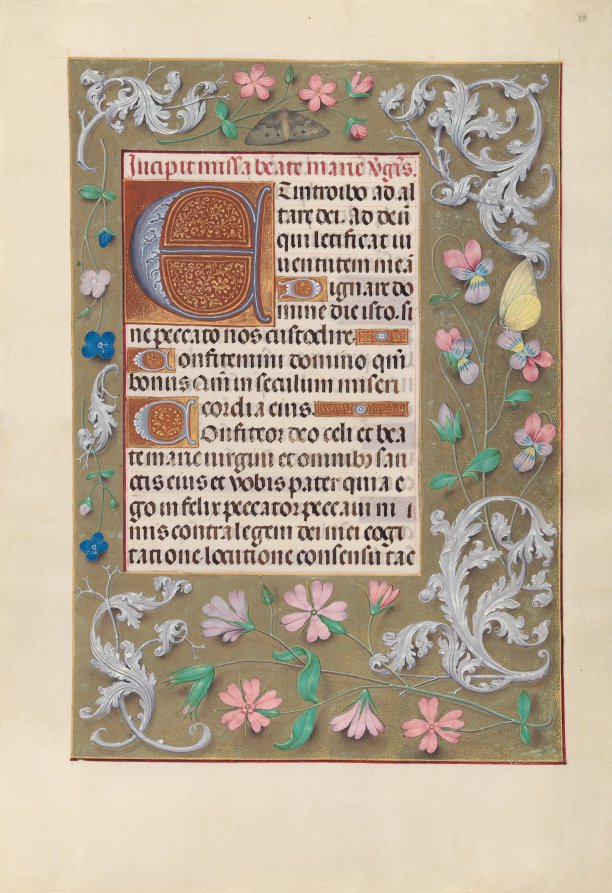 Incipit missa beate marie vgis.
Et introibo ad al
tare dei. Ad deū
qui letificat iu
uentutem meā
Dignare do
mine die isto. si
ne peccato nos custodire
Confitemini domino qm̄
bonus Qm̄ in seculum miseri
cordia eius.
Confiteor deo celi et bea
te marie uirgini et omnibꝫ san
ctis eius et vobis pater quia e
go infelix peccator peccaui ni i
mis contra legem dei mei cogi
tatione locutione consensu tac